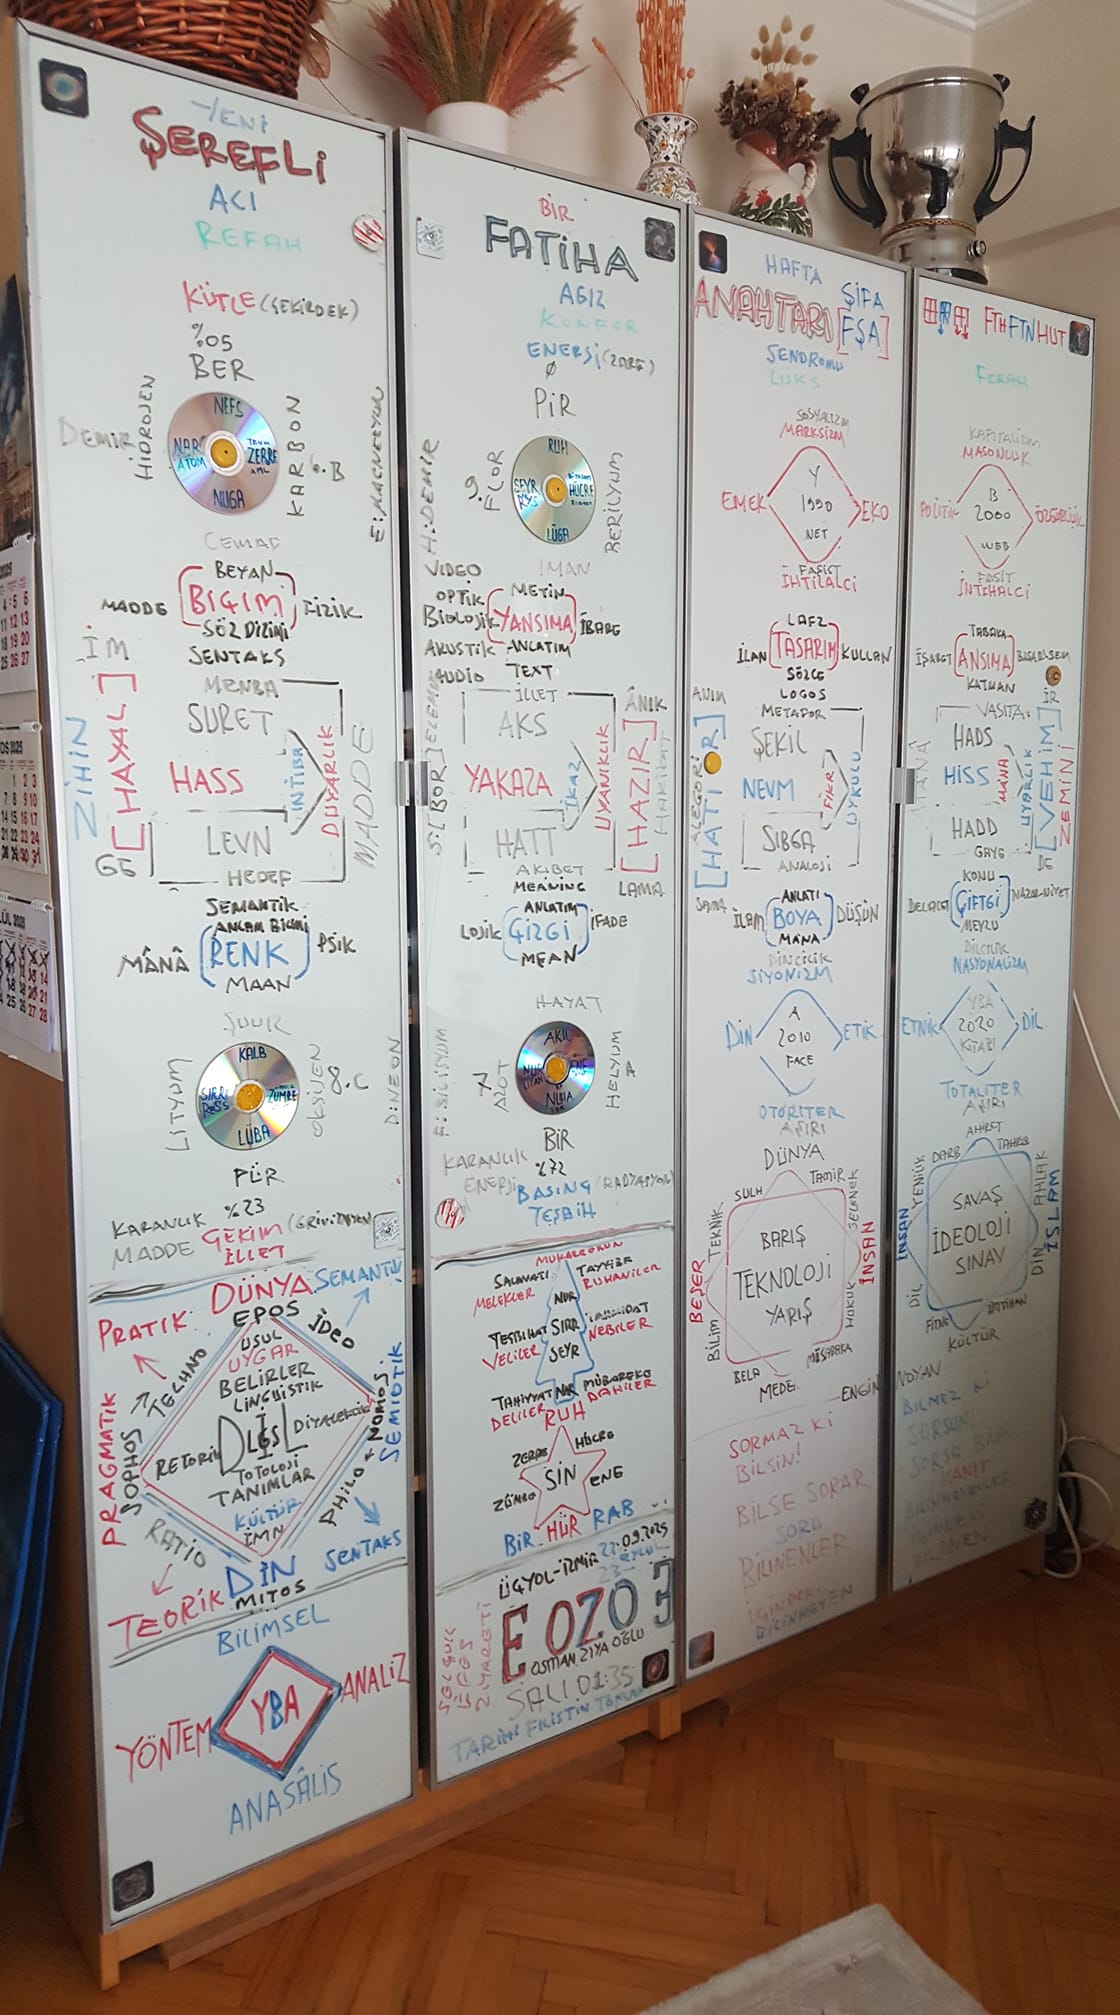 YENİ
ŞEREFLİ
ACI
REFAH
KÜTLE (ÇEKİRDEK)
%05
BER
DEMİR
HİDROJEN
NEFS
ATOM
ZERRE
NUGA
KARBON
6.B
CEMAD
BEYAN
MADDE [BİÇİM] FİZİK
SÖZ DİZİMİ
SENTAKS
İM
MENBA
SURET
ZİHİN
[HAYAL]
HASS
İNTİBA
DUYARLIK
MADDE
LEVN
GE
HEDEF
SEMANTİK
ANLAM BİLİMİ
MÂNÂ [RENK] PSİK
MAAN
ŞUUR
LİTYUM
KALB
SIRRİ
ZÜMRE
LÜBA
OKSİJEN
8.C
D:NEON
PÜR
%23
KARANLIK
MADDE
ÇEKİM
İLLET
DÜNYA
SEMANTİK
PRATİK
EPOS
İDEO
USUL
UYGAR
BELİRLER
LİNGUİSTİK
TECHNO
PRAGMATİK
SOPHOS
RETORİK
DİYALEKTİK
NOMOS
SEMİOTİK
TOTOLOJİ
TANIMLAR
KÜLTÜR
İMN
PHİLO
RATİO
DİN
SENTAKS
TEORİK
MİTOS
BİLİMSEL
YÖNTEM
YBA
ANALİZ
ANASÂLİS
BİR
FATİHA
AĞIZ
KONFOR
ENERJİ (ZARF)
PİR
H:DEMİR
9.
FLOR
RUH
HÜCRE
LÜGA
BERİLYUM
VIDEO
İMAN
OPTİK
METİN
BİYOLOJİK [YANSIMA] İBARE
AKUSTİK
ANLATIM
AUDIO
TEXT
İLLET
AKS
ÂNIK
YAKAZA
İKAZ
UYANIKLIK
[HAZIR]
HAKİKAT
HATT
AKIBET
MEANING
LAMA
ANLATIM
LOJİK [ÇİZGİ] İFADE
MEAN
HAYAT
F:SİLİSYUM
7
AZOT
AKIL
ENE
HELYUM
BİR
%72
KARANLIK
ENERJİ
BASINÇ (RADYASYON)
TESBİH
MUKARREBUN
SALAVATI
TAYYİBE
MELEKLER
RUHANİLER
NUR
TESBİHAT
SIRR
VELİLER
NEBİLER
SEYR
TAHİYYAT
NAR
MÜBAREKE
DELİLER
DAHİLER
RUH
ZERRE
HÜCRE
SİN
ZÜMRE
ENE
BİR
HÜR
RAB
ÜÇYOL-İZMİR 22.09.2025
23 EYLÜL
E OZO 3
OSMAN ZİYA OĞLU
SALI 01:35
TARİHİ FİLİSTİN
HAFTA
ŞİFA
ANAHTARI [FŞA]
SENDROMU
LÜKS
SOSYALİZM
MARKSİZM
Y
EMEK
1990
EKO
NET
FAŞİST
İHTİLALCİ
LAFZ
İLAN [TASARIM] KULLAN
SÖZCE
LOGOS
ANIM
METAFOR
ŞEKİL
ALEGORİ
[HATIR]
NEVM
FİKİR
UYKUCU
SIBGA
ANALOJİ
ANLATI
İLAM [BOYA] DÜŞÜN
MANA
DİNCİLİK
SİYONİZM
A
DİN
2010
ETİK
FACE
OTORİTER
AŞIRI
DÜNYA
SULH
TAMİR
TEKNİK
GELENEK
BARIŞ
BEŞER
TEKNOLOJİ
İNSAN
YARIŞ
BİLİM
HUKUK
BELA
MÜSABAKA
MEDE
ENGİN
SORMAZ Kİ
BİLSİN!
BİLSE SORAR
SORU
BİLİNENLER
İÇİNDEKİ
BİLİNMEYEN
FTHFTNHUT
FERAH
KAPİTALİZM
MASONLUK
B
POLİTİK
2000
ÖZGÜRLÜK
WEB
FAŞİT
İNTİHALCİ
TABAKA
İŞARET [ANSIMA]
KATMAN
İR
VASITA
HADS
MANA
HİSS
MÂNÂ
UYARLIK
[VEHİM]
ZEMİNİ
HADD
GAYE
DE
KONU
DELALET [ÇİFTÇİ] NAZAR-NİYET
MEVZU
DİLCİLİK
NASYONALİZM
YBA
ETNİK
2020
DİL
KİTABI
TOTALİTER
AŞIRI
AHİRET
DARB
TAHRİB
YENİLİK
AHLAK
SAVAŞ
İNSAN
İDEOLOJİ
İSLAM
SINAV
DİL
DİN
FİTNE
İMTİHAN
KÜLTÜR
NOYAN
BİLMEZ Kİ
SORSUN!
SORSA
YANIT